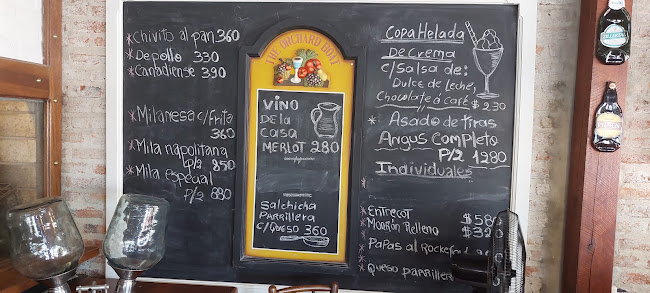 *Chivito al pan 360
*De pollo 330
*Canadiense 390
*Milanesa c/Frita
360
*Mila napolitana
P/2 850
*Mila especial
P/2 880
THE ORCHARD BOAT
VINO
DE LA
CASA
MERLOT 280
Salchicha
PARRILLERA
C/QUESO 360
COPA Helada
De crema
c/salsa de:
Dulce de leche,
Chocolate á café $230
* Asado de tiras
Angus Completo
P/2 1280
Individuales
*Entrecot $580
*Morrón Relleno $320
*Papas al Rockefort
*Queso parrillero
ZILLERTAL